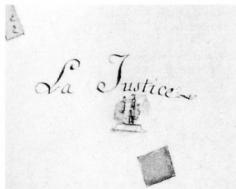 La Justice